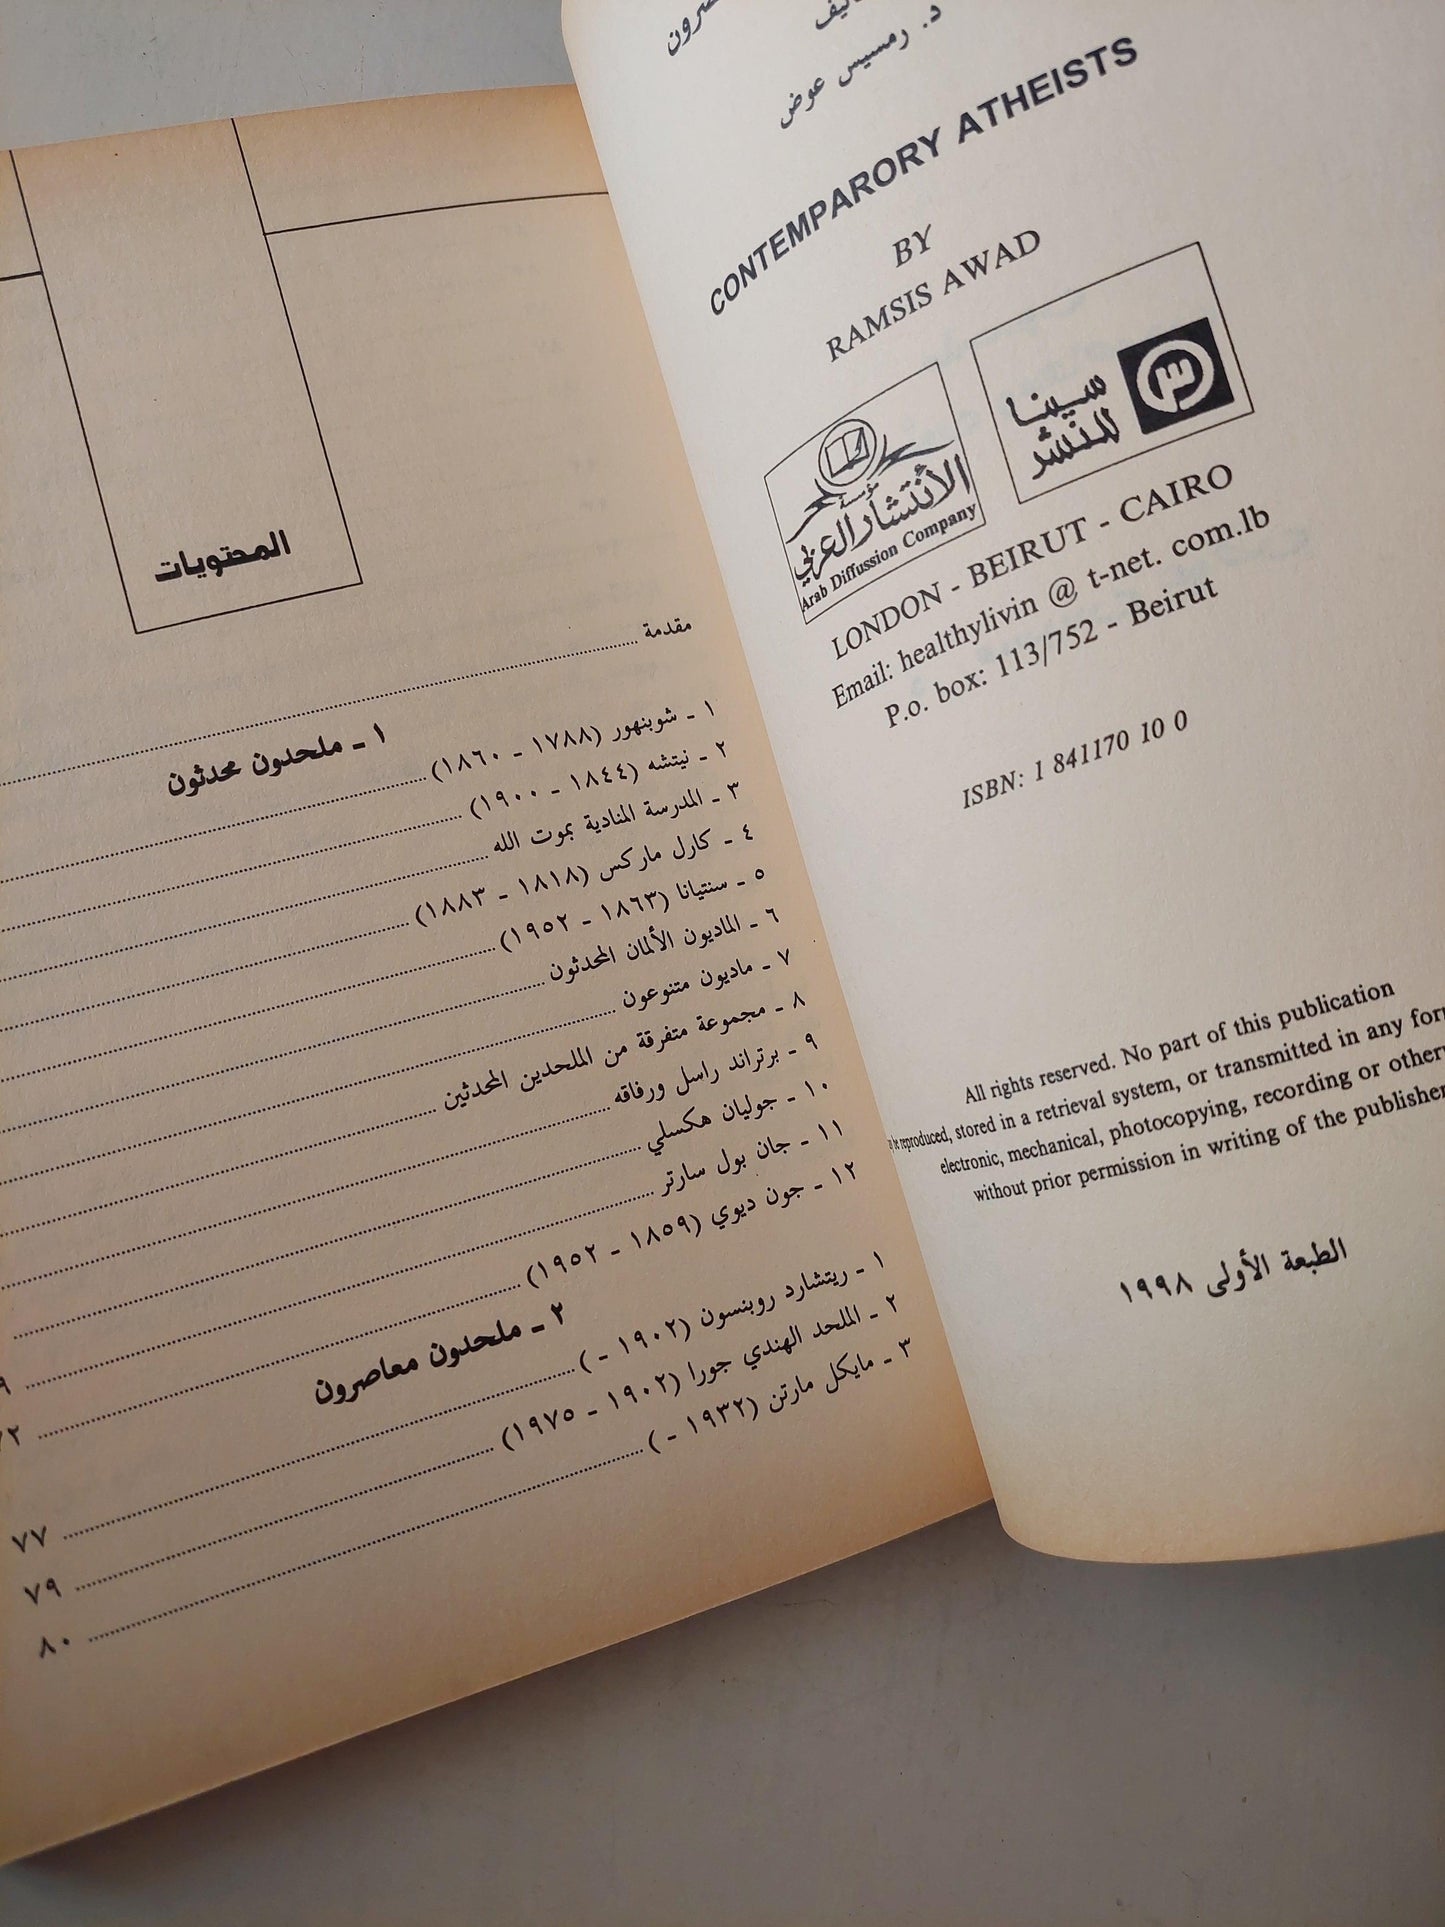 د. رمسيس عوض
CONTEMPARORY ATHEISTS
BY
RAMSIS AWAD
مؤسسة
الانتشار العربي
Arab Diffussion Company
سينا
للنشر
LONDON - BEIRUT - CAIRO
Email: healthylivin @ t-net. com.lb
P.o. box: 113/752 - Beirut
ISBN: 1 841170 10 0
All rights reserved. No part of this publication
be reproduced, stored in a retrieval system, or transmitted in any
electronic, mechanical, photocopying, recording or
without prior permission in writing of the publisher
الطبعة الأولى ١٩٩٨
المحتويات
مقدمة
١ ـ ملحدون محدثون
١ ـ شوبنهور (١٧٨٨ ـ ١٨٦٠)
٢ ـ نيتشه (١٨٤٤ ـ ١٩٠٠)
٣ ـ المدرسة المنادية بموت الله
٤ ـ كارل ماركس (١٨١٨ ـ ١٨٨٣)
٥ ـ سنتيانا (١٨٦٣ ـ ١٩٥٢)
٦ ـ الماديون الألمان المحدثون
٧ ـ ماديون متنوعون
٨ ـ مجموعة متفرقة من الملحدين المحدثين
٩ ـ برتراند راسل ورفاقه
١٠ ـ جوليان هكسلي
١١ ـ جان بول سارتر
١٢ ـ جون ديوي (١٨٥٩ ـ ١٩٥٢)
٢ ـ ملحدون معاصرون
١ ـ ريتشارد روبنسون (١٩٠٢ ـ ) ٧٧
٢ ـ الملحد الهندي جورا (١٩٠٢ ـ ١٩٧٥) ٧٩
٣ ـ مايكل مارتن (١٩٣٢ ـ ) ٨٠